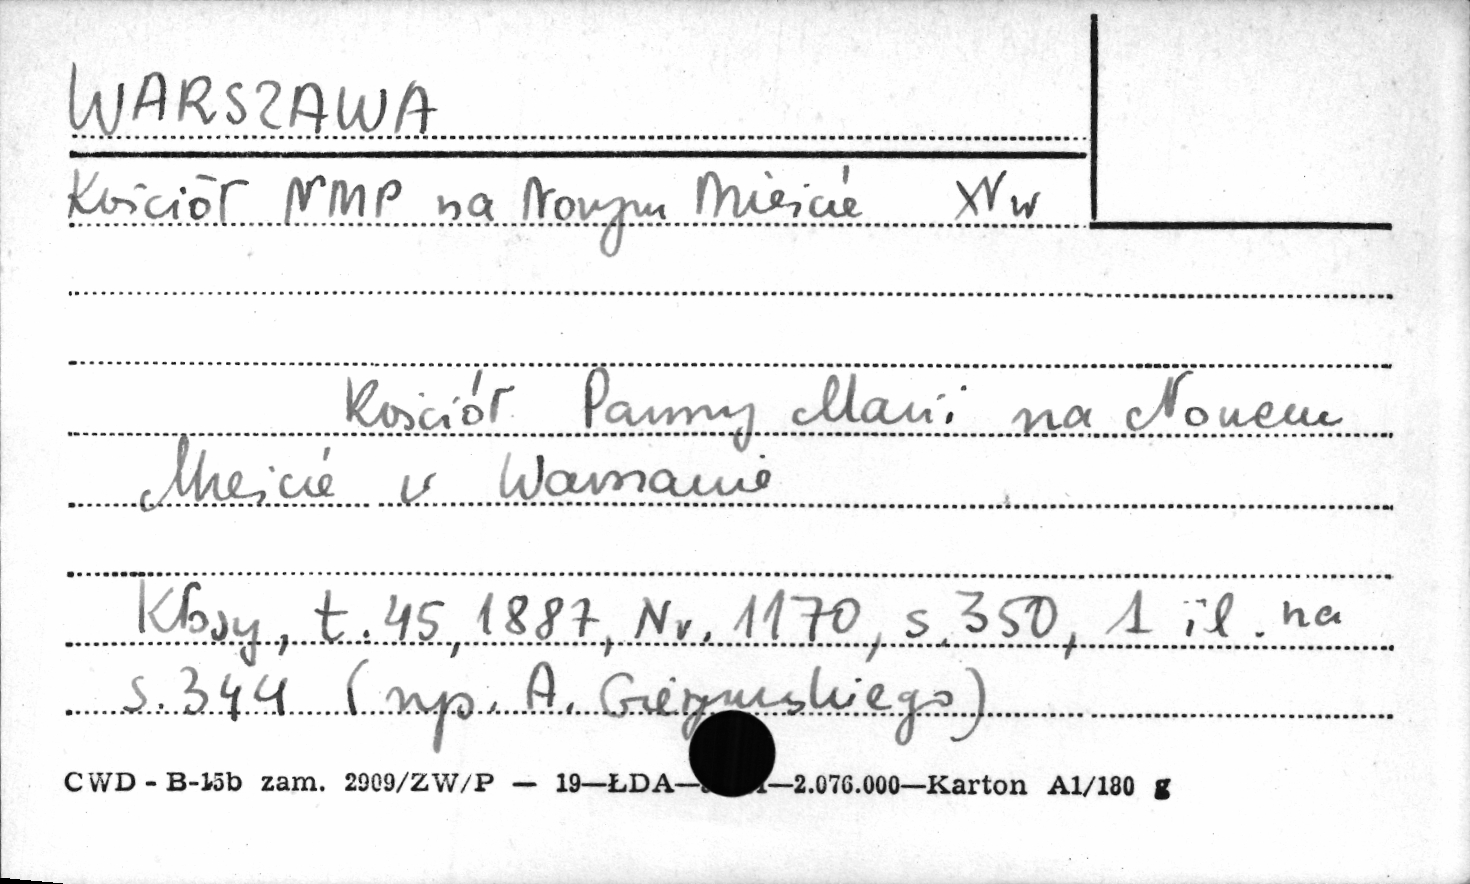 WARSZAWA
Kościół NMP na Nowym Mieście XV w
Kościół Panny Marii na Nowem
Mieście w Warszawie
Kłosy, t. 45, 1887, Nr. 1170, s. 350, 1 il. na
s. 344 (rys. A. Gierymskiego)
CWD - B-15b zam. 2909/ZW/P — 19—ŁDA— —2.076.000—Karton A1/180 g